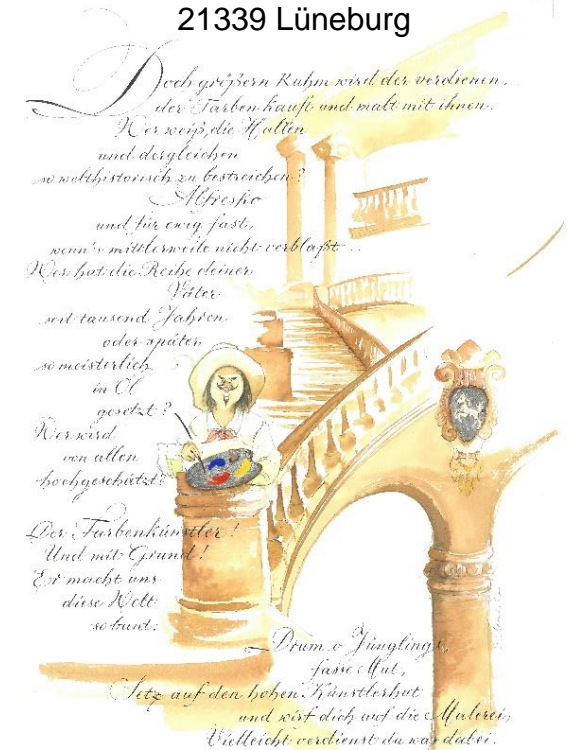 21339 Lüneburg
Doch größern Ruhm wird der verdienen,
der Farben kauft und malt mit ihnen.
Wer weiß, die Hallen
und dergleichen
so welthistorisch zu bestreichen?
Alfresko
und für ewig fast,
wenn's mittlerweile nicht verblaßt...
Wer hat die Reihe deiner
Väter
seit tausend Jahren
oder später
so meisterlich
in Öl
gesetzt?
Wer wird
von allen
hochgeschätzt?
Der Farbenkünstler!
Und mit Grund!
Er macht uns
diese Welt
so bunt.
Drum o Jüngling,
fasse Mut,
Setz auf den hohen Künstlerhut
und wirf dich auf die Malerei;
Vielleicht verdienst du was dabei.